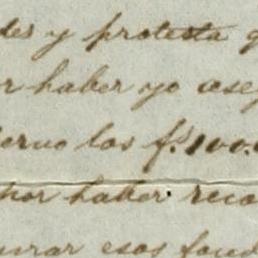 des y protesta q
r haber yo ase
erno los f.s 100.
por haber reco
urar esos fond